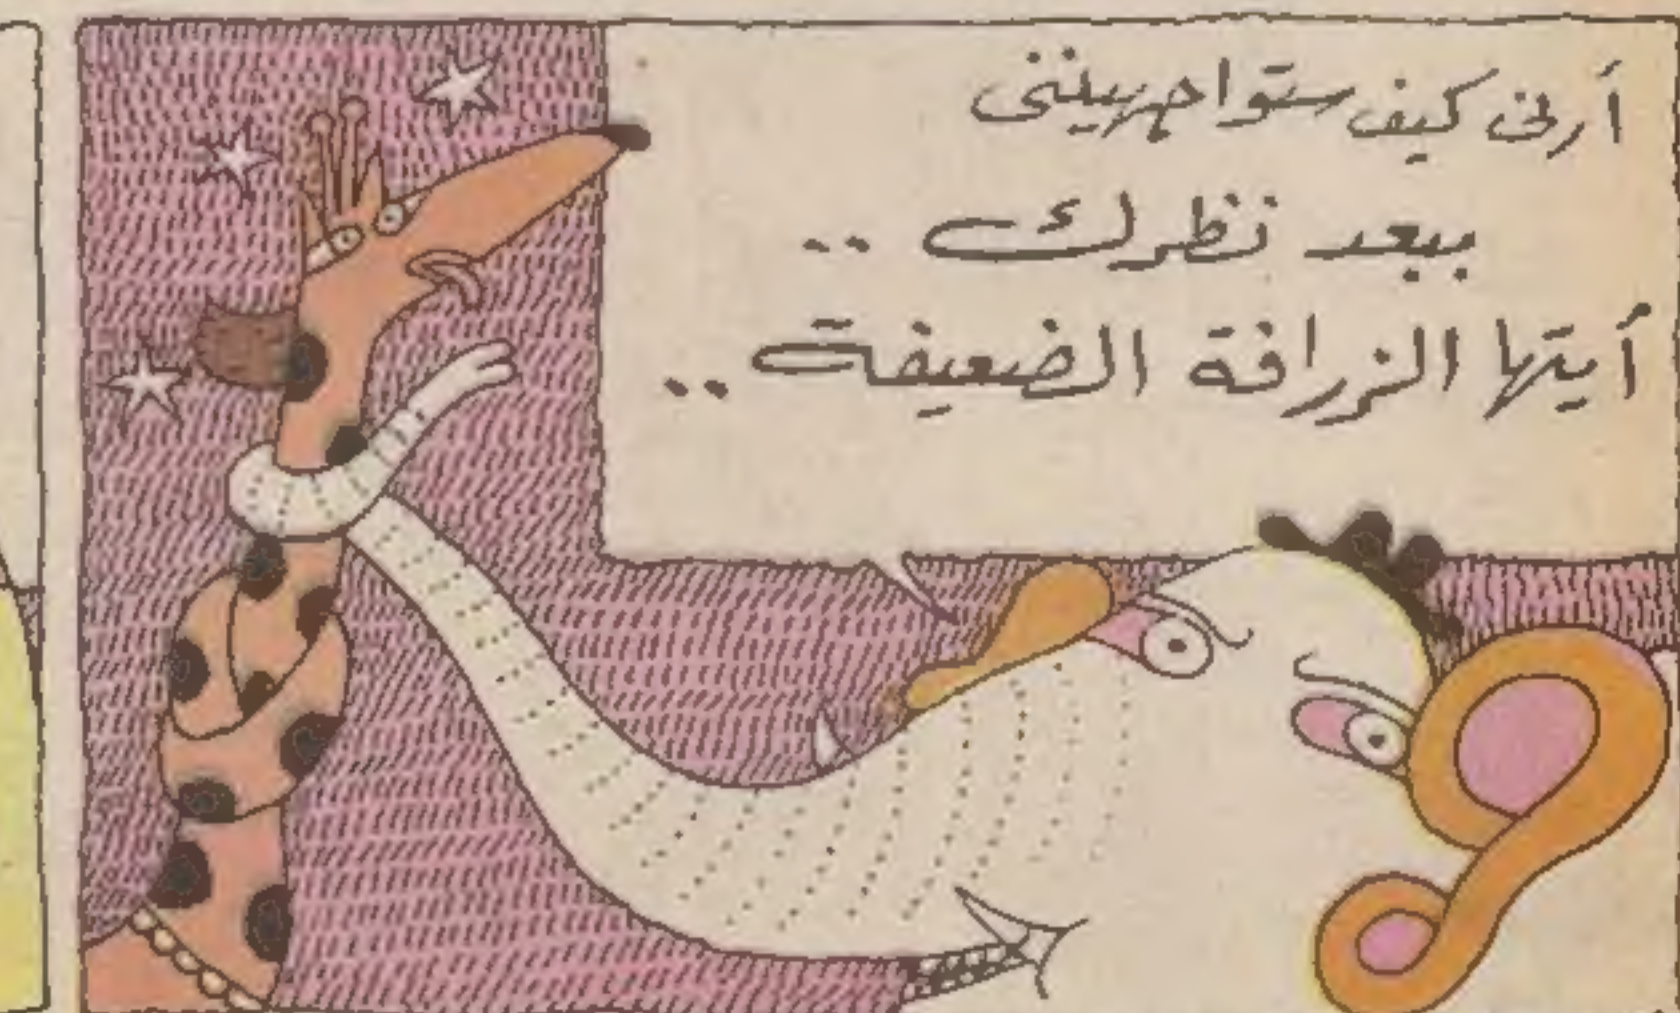 أرنى كيف ستواجهيننى
ببعد نظرك ..
أيتها الزرافة الضعيفة ..